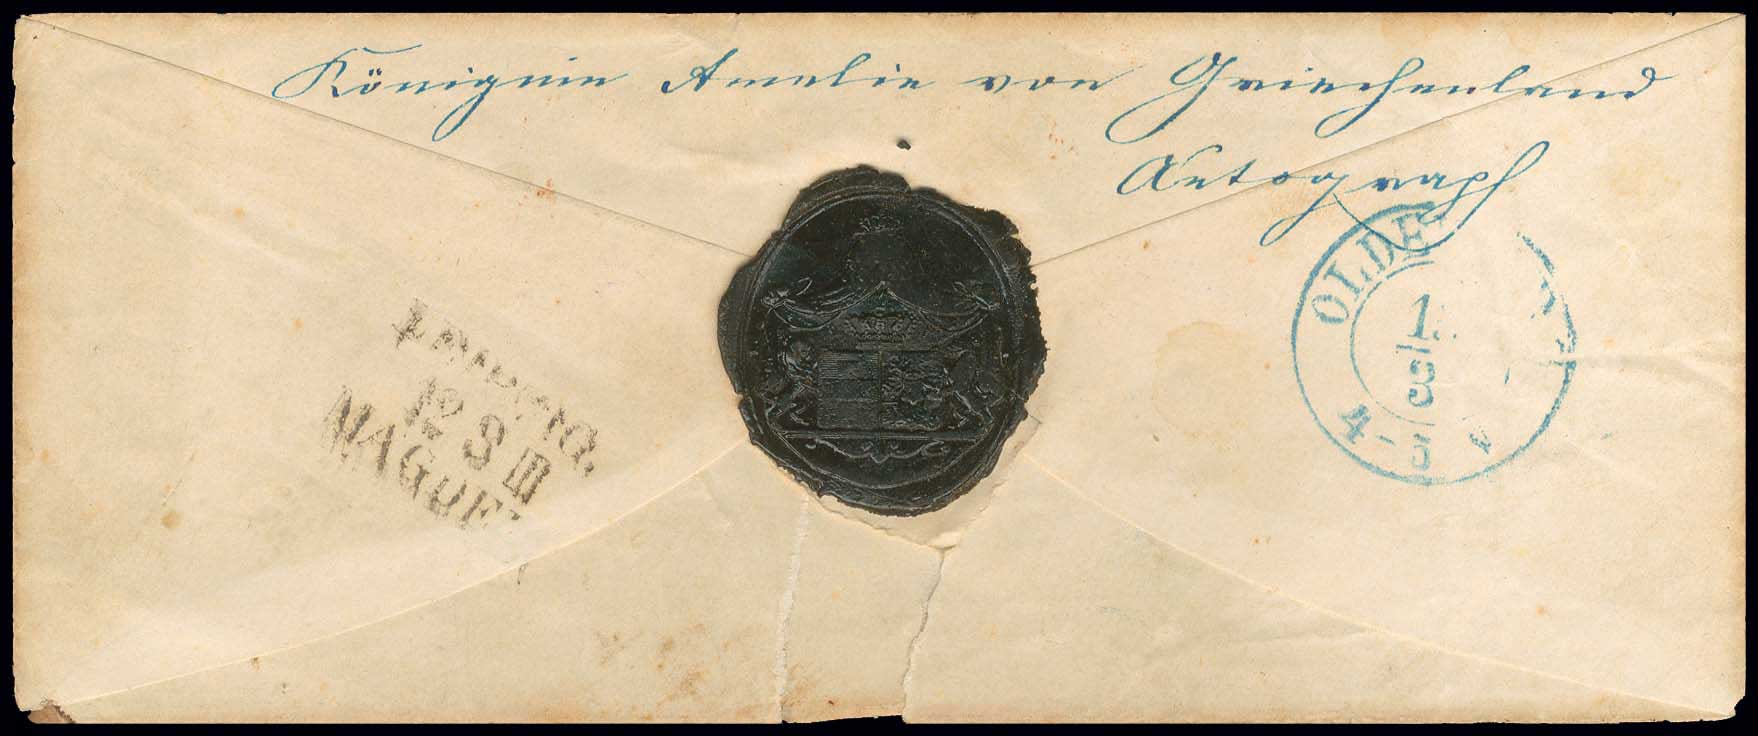 Königin Amelie von Griechenland
Autograph
OLDE
1
8/3
4-5
LEIPZIG.
12 8 III
MAGDE